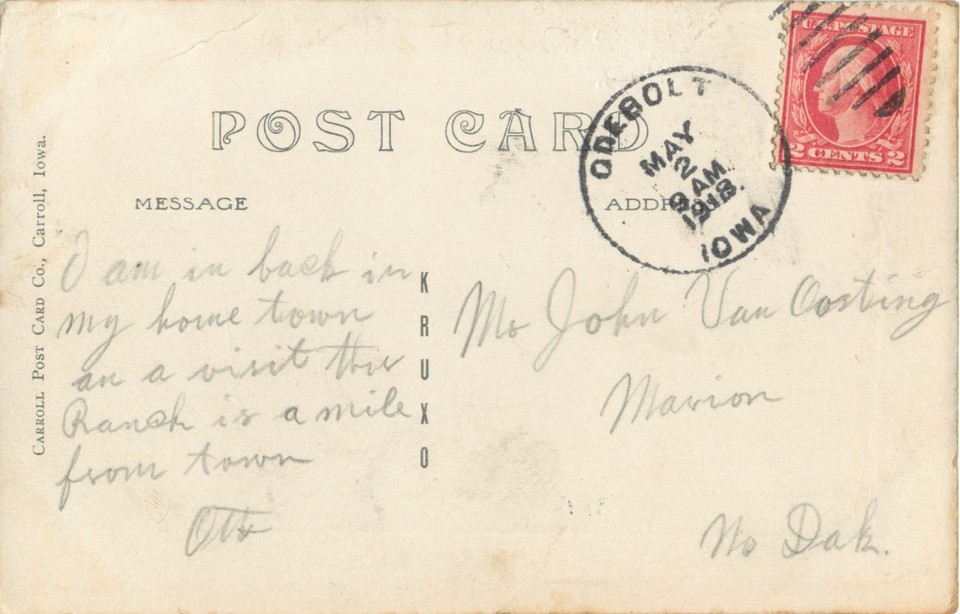 U.S. POSTAGE
2 CENTS 2
POST CARD
ODEBOLT
MAY
2
9 AM
1918.
IOWA
MESSAGE
ADDRESS
CARROLL POST CARD CO., Carroll, Iowa.
KRUXO
I am in back in
my home town
an a visit this
Ranch is a mile
from town
Otto
Mo John Van Oosting
Marion
No Dak.